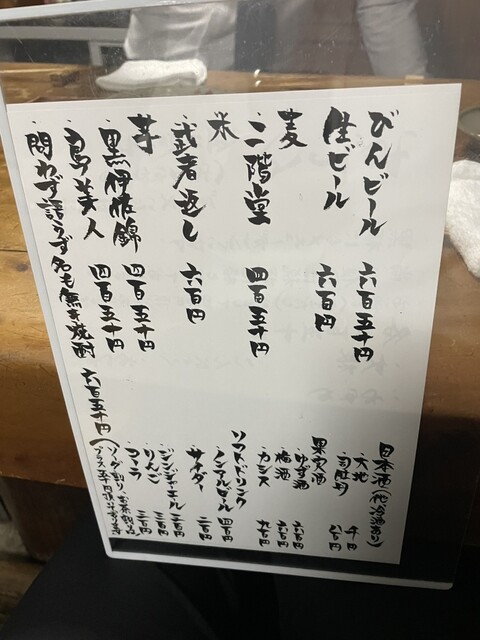 びんビール 六百五十円
生ビール 六百円
麦
・二階堂 四百五十円
米
・武者返し 六百円
芋
・黒伊佐錦 四百五十円
・島美人 四百五十円
・問わず語らず名も無き焼酎 六百五十円
日本酒(他冷酒あり)
・大地 千円
八百円
果実酒
・ゆず酒 六百円
・梅酒 六百円
・カシス 九百円
ソフトドリンク
・ノンアルビール 四百円
・サイダー 二百円
・ジンジャーエール 二百円
・りんご 三百円
・コーラ 二百円
(ソーダ割り、お茶割りは
プラス五十円頂いております